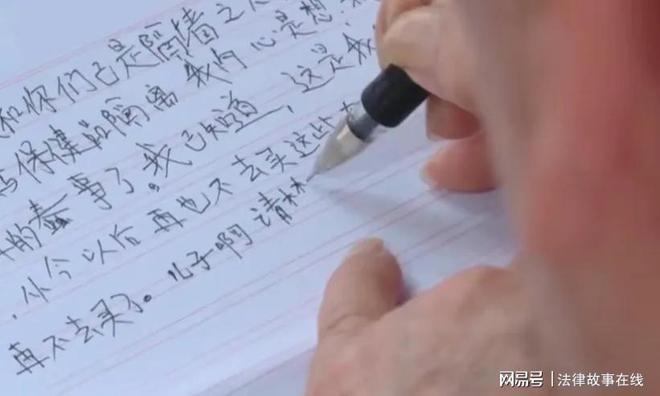 和你们已是隔墙之人
与保健品隔离我内心是想
的蠢事了。我已知道，这是我
，从今以后再也不去买这些
再不去买了。儿子啊请
网易号 | 法律故事在线